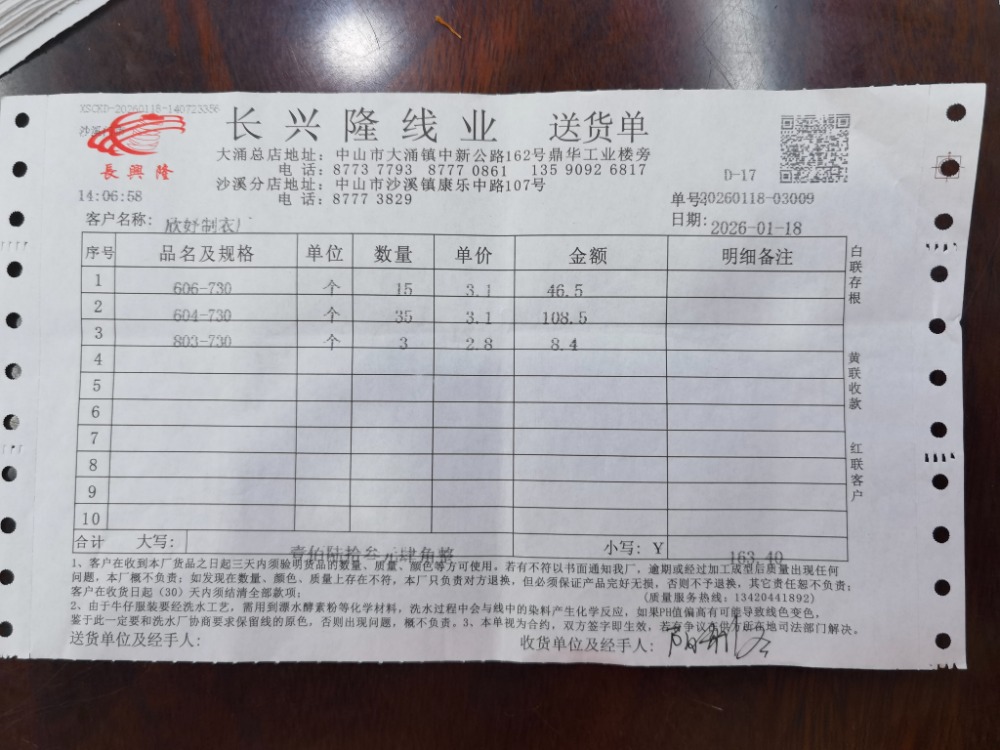 XSCKD-20260118-140723356
長興隆
长兴隆线业 送货单
大涌总店地址：中山市大涌镇中新公路162号鼎华工业楼旁
电话：8773 7793 8777 0861 135 9092 6817
沙溪分店地址：中山市沙溪镇康乐中路107号
电话：8777 3829
D-17
14:06:58
单号:20260118-03009
客户名称：欣妤制衣厂
日期：2026-01-18
序号 品名及规格 单位 数量 单价 金额 明细备注
1 606-730 个 15 3.1 46.5
2 604-730 个 35 3.1 108.5
3 803-730 个 3 2.8 8.4
4
5
6
7
8
9
10
合计 大写：壹佰陆拾叁元肆角整 小写：￥ 163.40
白联存根
黄联收款
红联客户
1、客户在收到本厂货品之日起三天内须验明货品的数量、质量、颜色等方可使用。若有不符以书面通知我厂，逾期或经过加工成型后质量出现任何
问题，本厂概不负责；如发现在数量、颜色、质量上存在不符，本厂只负责对方退换，但必须保证产品完好无损，否则不予退换，其它责任恕不负责；
客户在收货日起（30）天内须结清全部款项； （质量服务热线：13420441892）
2、由于牛仔服装要经洗水工艺，需用到漂水酵素粉等化学材料，洗水过程中会与线中的染料产生化学反应，如果PH值偏高有可能导致线色变色，
鉴于此一定要和洗水厂协商要求保留线的原色，否则出现问题，概不负责。3、本单视为合约，双方签字即生效，若有争议在供方所在地司法部门解决。
送货单位及经手人：
收货单位及经手人：